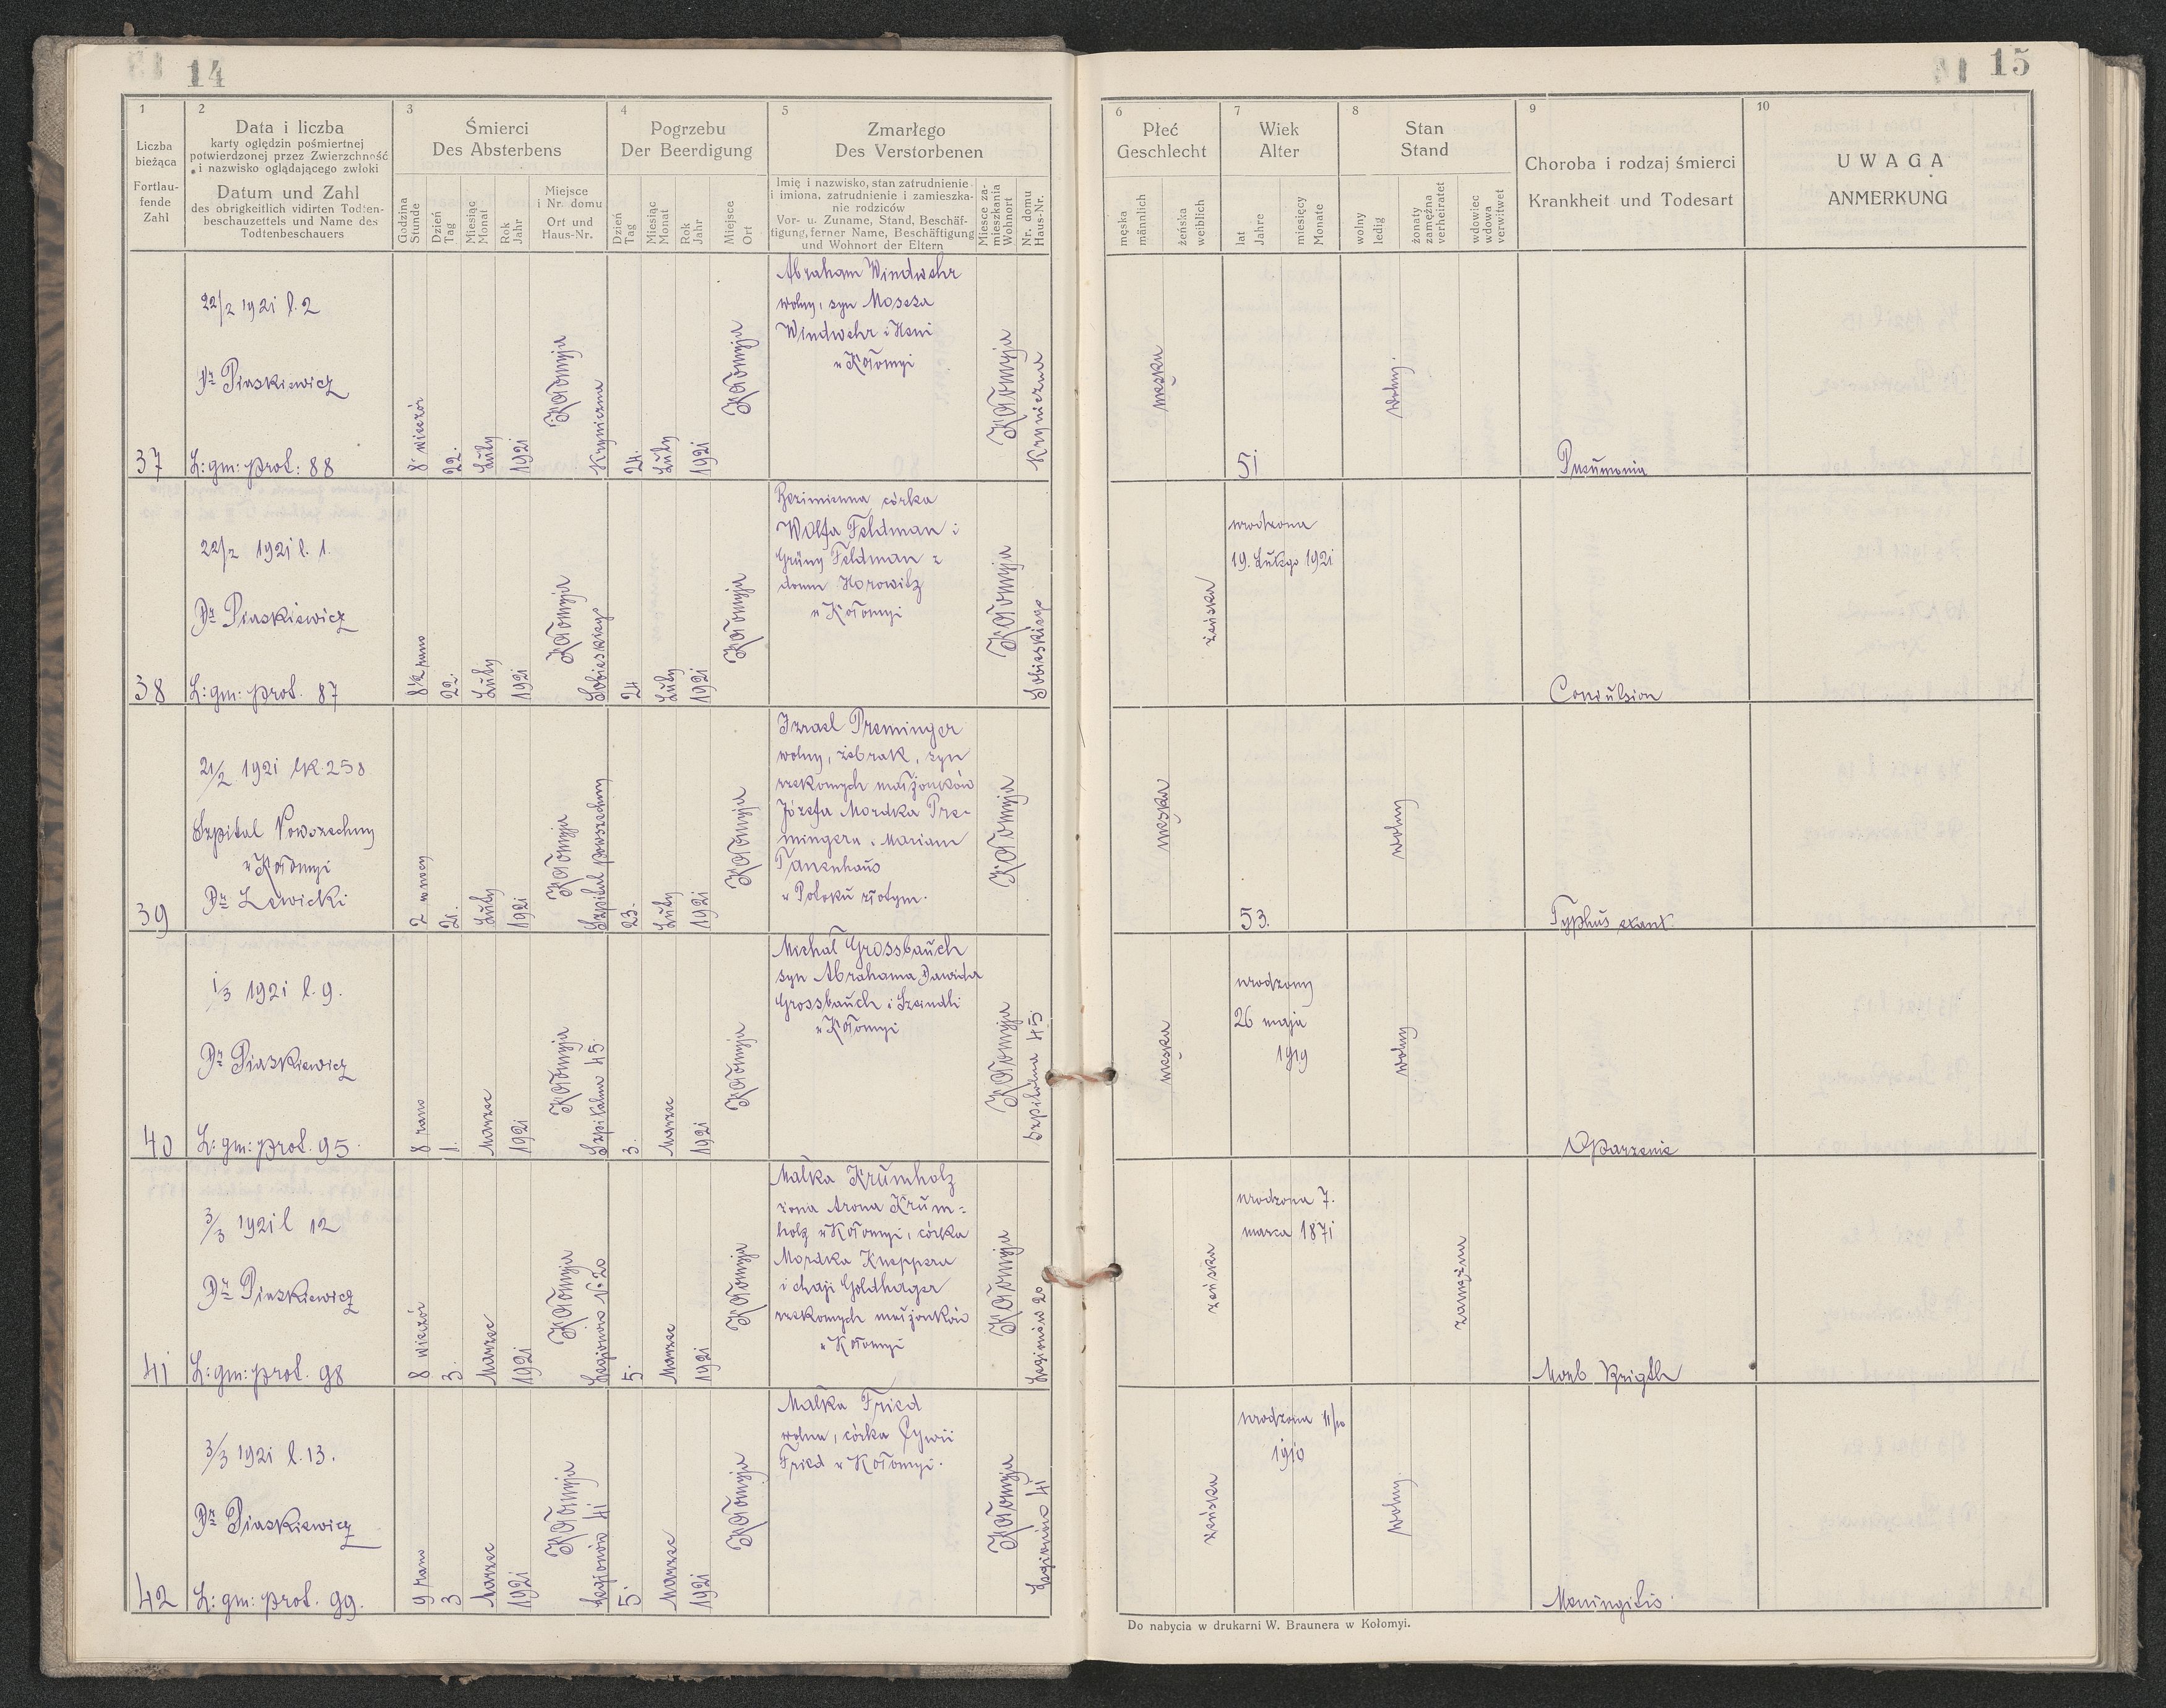 14
1
Liczba
bieżąca
Fortlau-
fende
Zahl
2
Data i liczba
karty oględzin pośmiertnej
potwierdzonej przez Zwierzchność
i nazwisko oglądającego zwłoki
Datum und Zahl
des obrigkeitlich vidirten Todten-
beschauzettels und Name des
Todtenbeschauers
3
Śmierci
Des Absterbens
Godzina
Stunde
Dzień
Tag
Miesiąc
Monat
Rok
Jahr
Miejsce
i Nr. domu
Ort und
Haus-Nr.
4
Pogrzebu
Der Beerdigung
Dzień
Tag
Miesiąc
Monat
Rok
Jahr
Miejsce
Ort
5
Zmarłego
Des Verstorbenen
Imię i nazwisko, stan zatrudnienie
i imiona, zatrudnienie i zamieszka-
nie rodziców
Vor- u. Zuname, Stand, Beschäf-
tigung, ferner Name, Beschäftigung
und Wohnort der Eltern
Miesce za-
mieszkania
Wohnort
Nr. domu
Haus-Nr.
15
6
Płeć
Geschlecht
męska
männlich
żeńska
weiblich
7
Wiek
Alter
lat
Jahre
miesięcy
Monate
8
Stan
Stand
wolny
ledig
żonaty
zamężna
verheiratet
wdowiec
wdowa
verwitwet
9
Choroba i rodzaj śmierci
Krankheit und Todesart
10
UWAGA
ANMERKUNG
37
22/2 1921 l. 2
Dr Piaskiewicz
L: gm: prot: 88
8 wieczór
22.
Luty
1921
Kołomyja
Kryniczna
24.
Luty
1921
Kołomyja
Abraham Windwehr
wolny, syn Mosesa
Windwehr i Heni
w Kołomyi
Kołomyja
Kryniczna
męska
51
wolny.
Pneumonia
38
22/2 1921 l. 1.
Dr Piaskiewicz
L: gm: prot. 87
8½ rano
22.
Luty
1921
Kołomyja
Sobieskiego
24
Luty
1921
Kołomyja
Bezimienna, córka
Wolfa Feldman i
Grüny Feldman z
domu Horowitz
w Kołomyi
Kołomyja
Sobieskiego
żeńska
urodzona
19. Lutego 1921
Convulsion
39
21/2 1921 lk. 258
Szpital Powszechny
w Kołomyi
Dr Lewicki
2 w nocy
21.
Luty
1921
Kołomyja
Szpital powszechny
23.
Luty
1921
Kołomyja
Izrael Preminger
wolny, żebrak, syn
rzekomych małżonków
Józefa Mordka Pre-
mingera i Mariam
Tanenhaus
w Potoku złotym.
Kołomyja
męska
53.
wolny
Typhus exant.
40
1/3 1921 l. 9.
Dr Piaskiewicz
L: gm: prot. 95.
8 rano
1.
Marzec
1921
Kołomyja
Szpitalna 45.
3.
Marzec
1921
Kołomyja
Michał Grossbauch
syn Abrahama Dawida
Grossbauch i Szeindli
w Kołomyi
Kołomyja
Szpitalna 45.
męska
urodzony
26 maja
1919
wolny
Oparzenie
41
3/3 1921 l 12
Dr Piaskiewicz
L: gm: prot. 98
8 wieczór
3.
Marzec
1921
Kołomyja
Legionów No 20
5.
Marzec
1921
Kołomyja
Malka Krumholz
żona Arona Krum=
holz w Kołomyi, córka
Mordka Kneppera
i Chaji Goldhager
rzekomych małżonków
w Kołomyi
Kołomyja
Legionów 20
żeńska
urodzona 7.
marca 1871
zamężna
Morb Brigth
42
3/3 1921 l. 13.
Dr Piaskiewicz
L: gm: prot. 99.
9 rano
3
Marzec
1921
Kołomyja
Legionów 41
5.
Marzec
1921
Kołomyja
Malka Fried
wolna, córka Cywii
Fried w Kołomyi.
Kołomyja
Legionów 41
żeńska
urodzona 11/10
1910
wolny.
Meningitis
Do nabycia w drukarni W. Braunera w Kołomyi.